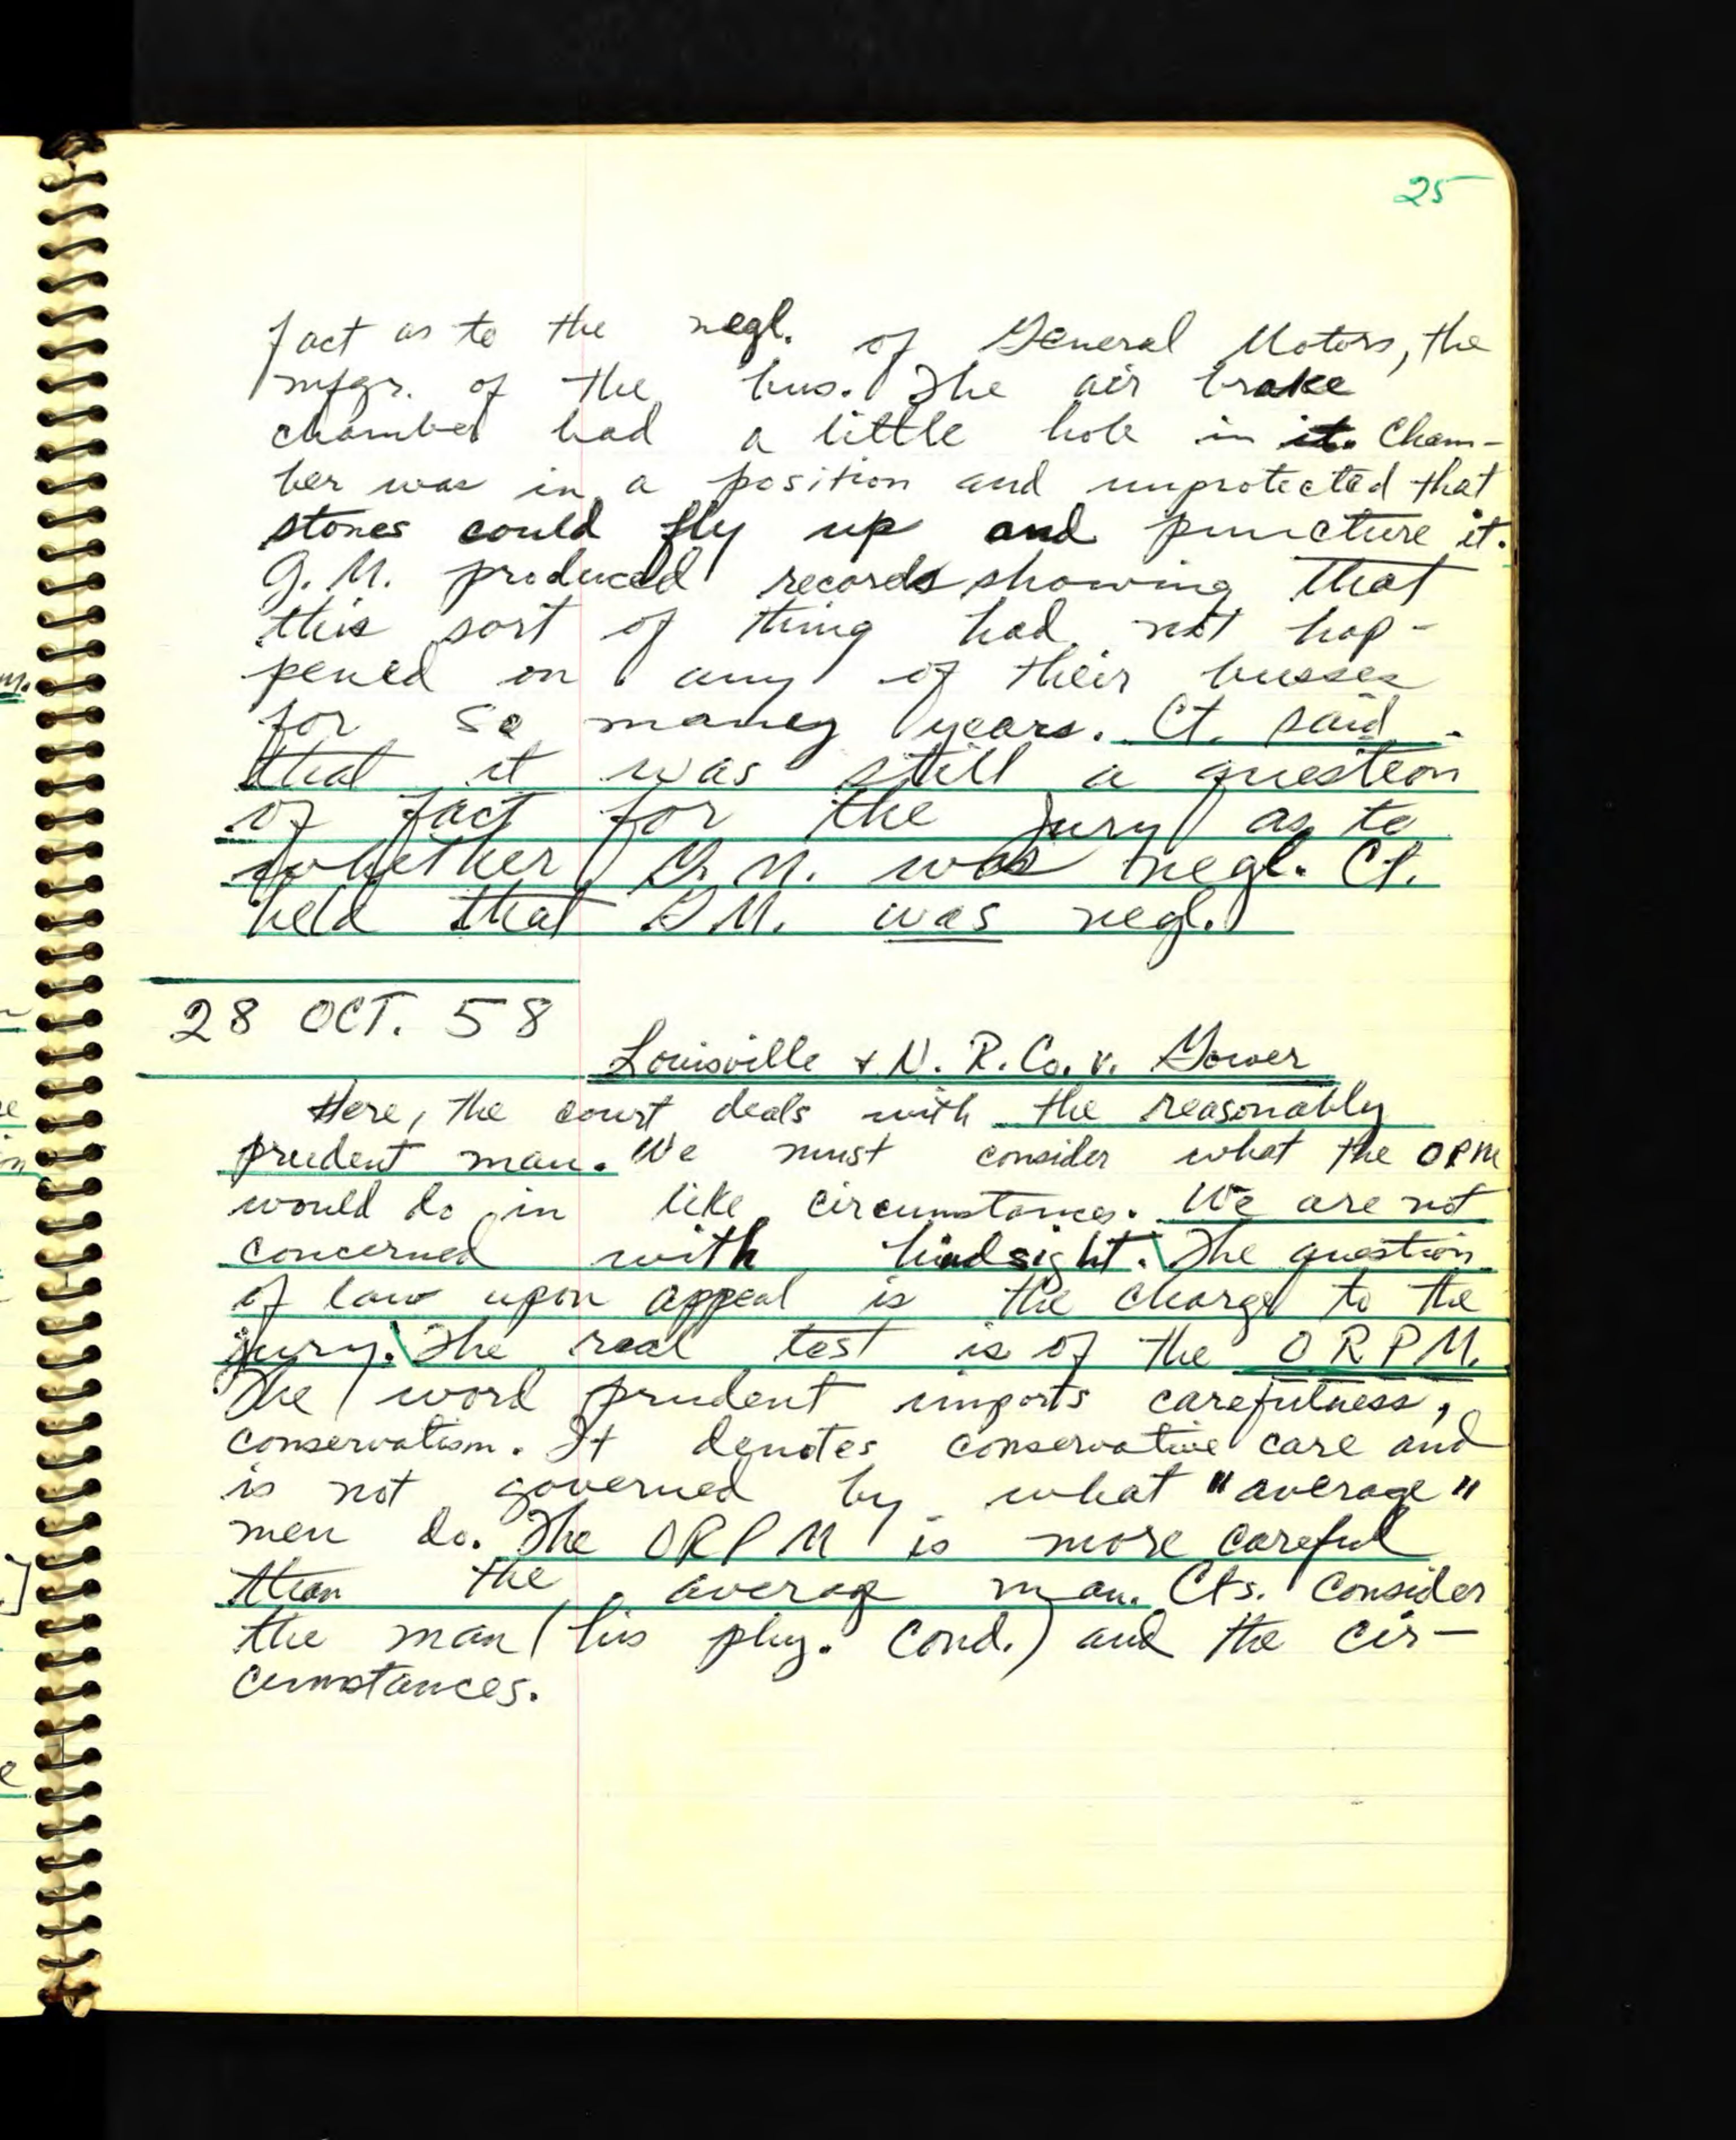 25
fact as to the negl. of General Motors, the
mfgr. of the bus. The air brake
chamber had a little hole in it. Cham-
ber was in a position and unprotected that
stones could fly up and puncture it.
G.M. produced records showing that
this sort of thing had not hap-
pened on any of their busses
for so many years. Ct. said
that it was still a question
of fact for the jury as to
whether G.M. was negl. Ct.
held that GM. was negl.
28 OCT. 58
Louisville & N. R. Co. v. Gower
Here, the court deals with the reasonably
prudent man. We must consider what the OPM
would do in like circumstances. We are not
concerned with hindsight. The question
of law upon appeal is the charge to the
jury. The real test is of the ORPM.
The word prudent imports carefulness,
conservatism. It denotes conservative care and
is not governed by what "average"
men do. The ORPM is more careful
than the average man. Cts. consider
the man (his phy. cond.) and the cir-
cumstances.